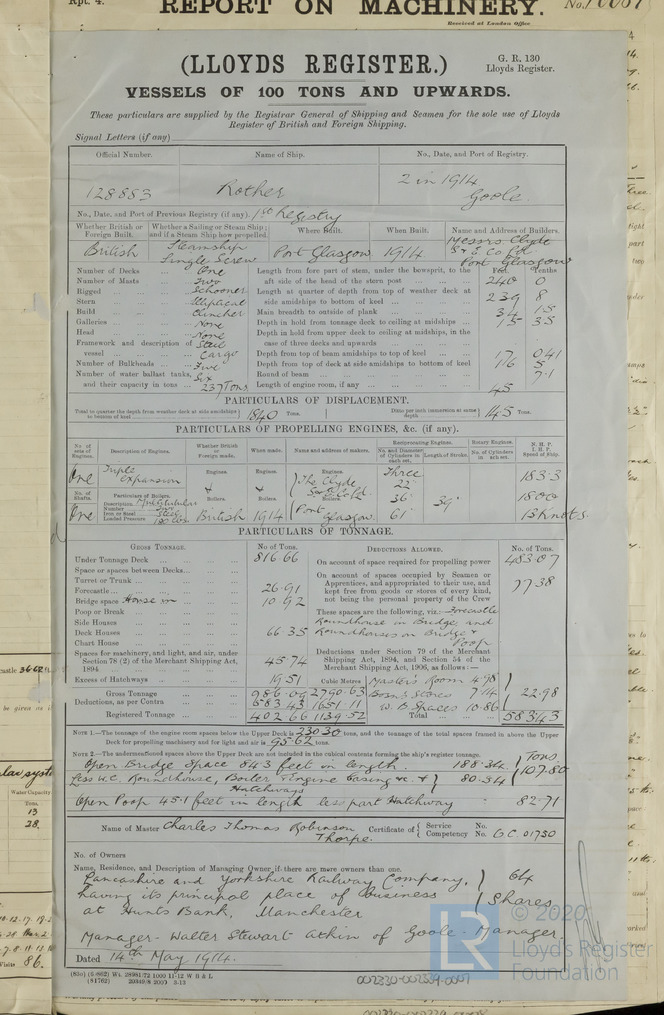 Rpt. 4.
REPORT ON MACHINERY.
No.
Received at London Office
(LLOYDS REGISTER.)
G. R. 130
Lloyds Register.
VESSELS OF 100 TONS AND UPWARDS.
These particulars are supplied by the Registrar General of Shipping and Seamen for the sole use of Lloyds
Register of British and Foreign Shipping.
Signal Letters (if any)
Official Number. Name of Ship. No., Date, and Port of Registry.
128883 Rother 2 in 1914
Goole
No., Date, and Port of Previous Registry (if any). 1st Registry
Whether British or Foreign Built. Whether a Sailing or Steam Ship; and if a Steam Ship how propelled. Where Built. When Built. Name and Address of Builders.
British Steamship Single Screw Port Glasgow 1914 Messrs. Clyde S & E Co Ld Port Glasgow
Feet. Tenths
Number of Decks ... One Length from fore part of stem, under the bowsprit, to the
Number of Masts ... Two aft side of the head of the stern post ... 240 0
Rigged ... Schooner Length at quarter of depth from top of weather deck at
Stern ... Elliptical side amidships to bottom of keel ... 239 8
Build ... Clincher Main breadth to outside of plank ... 34 15
Galleries ... None Depth in hold from tonnage deck to ceiling at midships ... 15 35
Head ... None Depth in hold from upper deck to ceiling at midships, in the
Framework and description of Steel case of three decks and upwards ...
vessel ... Cargo Depth from top of beam amidships to top of keel ... 17 041
Number of Bulkheads ... Five Depth from top of deck at side amidships to bottom of keel 16 5
Number of water ballast tanks, Six Round of beam ...
and their capacity in tons ... 237 Tons Length of engine room, if any ... 45
PARTICULARS OF DISPLACEMENT.
Total to quarter the depth from weather deck at side amidships to bottom of keel 1840 Tons. Ditto per inch immersion at same depth 14.5 Tons.
PARTICULARS OF PROPELLING ENGINES, &c. (if any).
No. of sets of Engines. Description of Engines. Whether British or Foreign made. When made. Name and address of makers. Reciprocating Engines. Rotary Engines. N. H. P. I. H. P. Speed of Ship.
No. and Diameter of Cylinders in each set. Length of Stroke. No. of Cylinders in each set.
One Triple Expansion Engines. Engines. Engines. The Clyde Three 183.3
No. of Shafts. Particulars of Boilers. Boilers. Boilers. 22" 36" 61" 39" 1800
Description Multitubular
Number Two
Iron or Steel Steel
Loaded Pressure 180 lbs
One British 1914 Port Glasgow 13 Knots
PARTICULARS OF TONNAGE.
GROSS TONNAGE. No. of Tons. DEDUCTIONS ALLOWED. No. of Tons.
Under Tonnage Deck ... 816.66 On account of space required for propelling power 483.07
Space or spaces between Decks... On account of spaces occupied by Seamen or
Turret or Trunk ... Apprentices, and appropriated to their use, and
Forecastle ... 26.91 kept free from goods or stores of every kind, 77.38
Bridge space House in ... 10.92 not being the personal property of the Crew
Poop or Break ... These spaces are the following, viz.:— Forecastle
Side Houses ... Roundhouse in Bridge and
Deck Houses ... 66.35 Roundhouses on Bridge &
Chart House ... Poop
Spaces for machinery, and light, and air, under Deductions under Section 79 of the Merchant
Section 78 (2) of the Merchant Shipping Act, Shipping Act, 1894, and Section 54 of the
1894 ... 45.74 Merchant Shipping Act, 1906, as follows:—
Excess of Hatchways ... 19.51 Cubic Metres Master's Room 4.98
Gross Tonnage ... 986.09 2790.63 Bosn's Stores 7.14 22.98
Deductions, as per Contra ... 583.43 1651.11 W. B. Spaces 10.86
Registered Tonnage ... 402.66 1139.52 Total ... 583.43
NOTE 1.—The tonnage of the engine room spaces below the Upper Deck is 230.30 tons, and the tonnage of the total spaces framed in above the Upper
Deck for propelling machinery and for light and air is 95.62 tons.
NOTE 2.—The undermentioned spaces above the Upper Deck are not included in the cubical contents forming the ship's register tonnage. Tons
Open Bridge Space 84.3 feet in length. 188.34
Less W.C. Roundhouse, Boiler & Engine Casing &c. & Hatchways 80.54 107.80
Open Poop 45.1 feet in length less part Hatchway 82.71
Name of Master Charles Thomas Robinson Thorpe. Certificate of Service Competency No. No. 6C 01730
No. of Owners
Name, Residence, and Description of Managing Owner if there are more owners than one.
Lancashire and Yorkshire Railway Company, 64
having its principal place of business Shares
at Hunts Bank, Manchester
Manager - Walter Stewart Athin of Goole - Manager
Dated 14th May 1914.
© 2020
LR Lloyd's Register
Foundation
002330-002339-0007